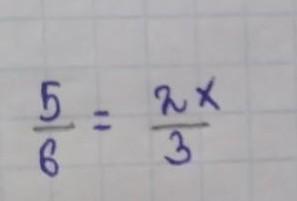 5/6 = 2x/3